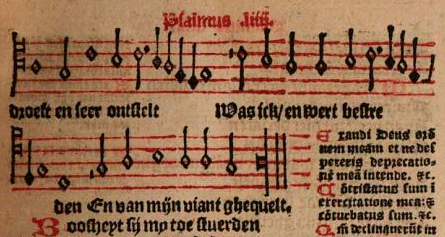 Psalmus .liiij.
droeft en seer ontstelt Was ick/ en wert bestre
den En van mijn viant ghequelt.
Boosheyt sij my toe stuerden
Exandi Deus orō
nem meam et ne des
pereris deprecatio-
nē meā intende. ꝛc.
Cōtristatus sum ī
exercitatione mea: ⁊
cōturbatus sum. ꝛc.
declinauerūt in